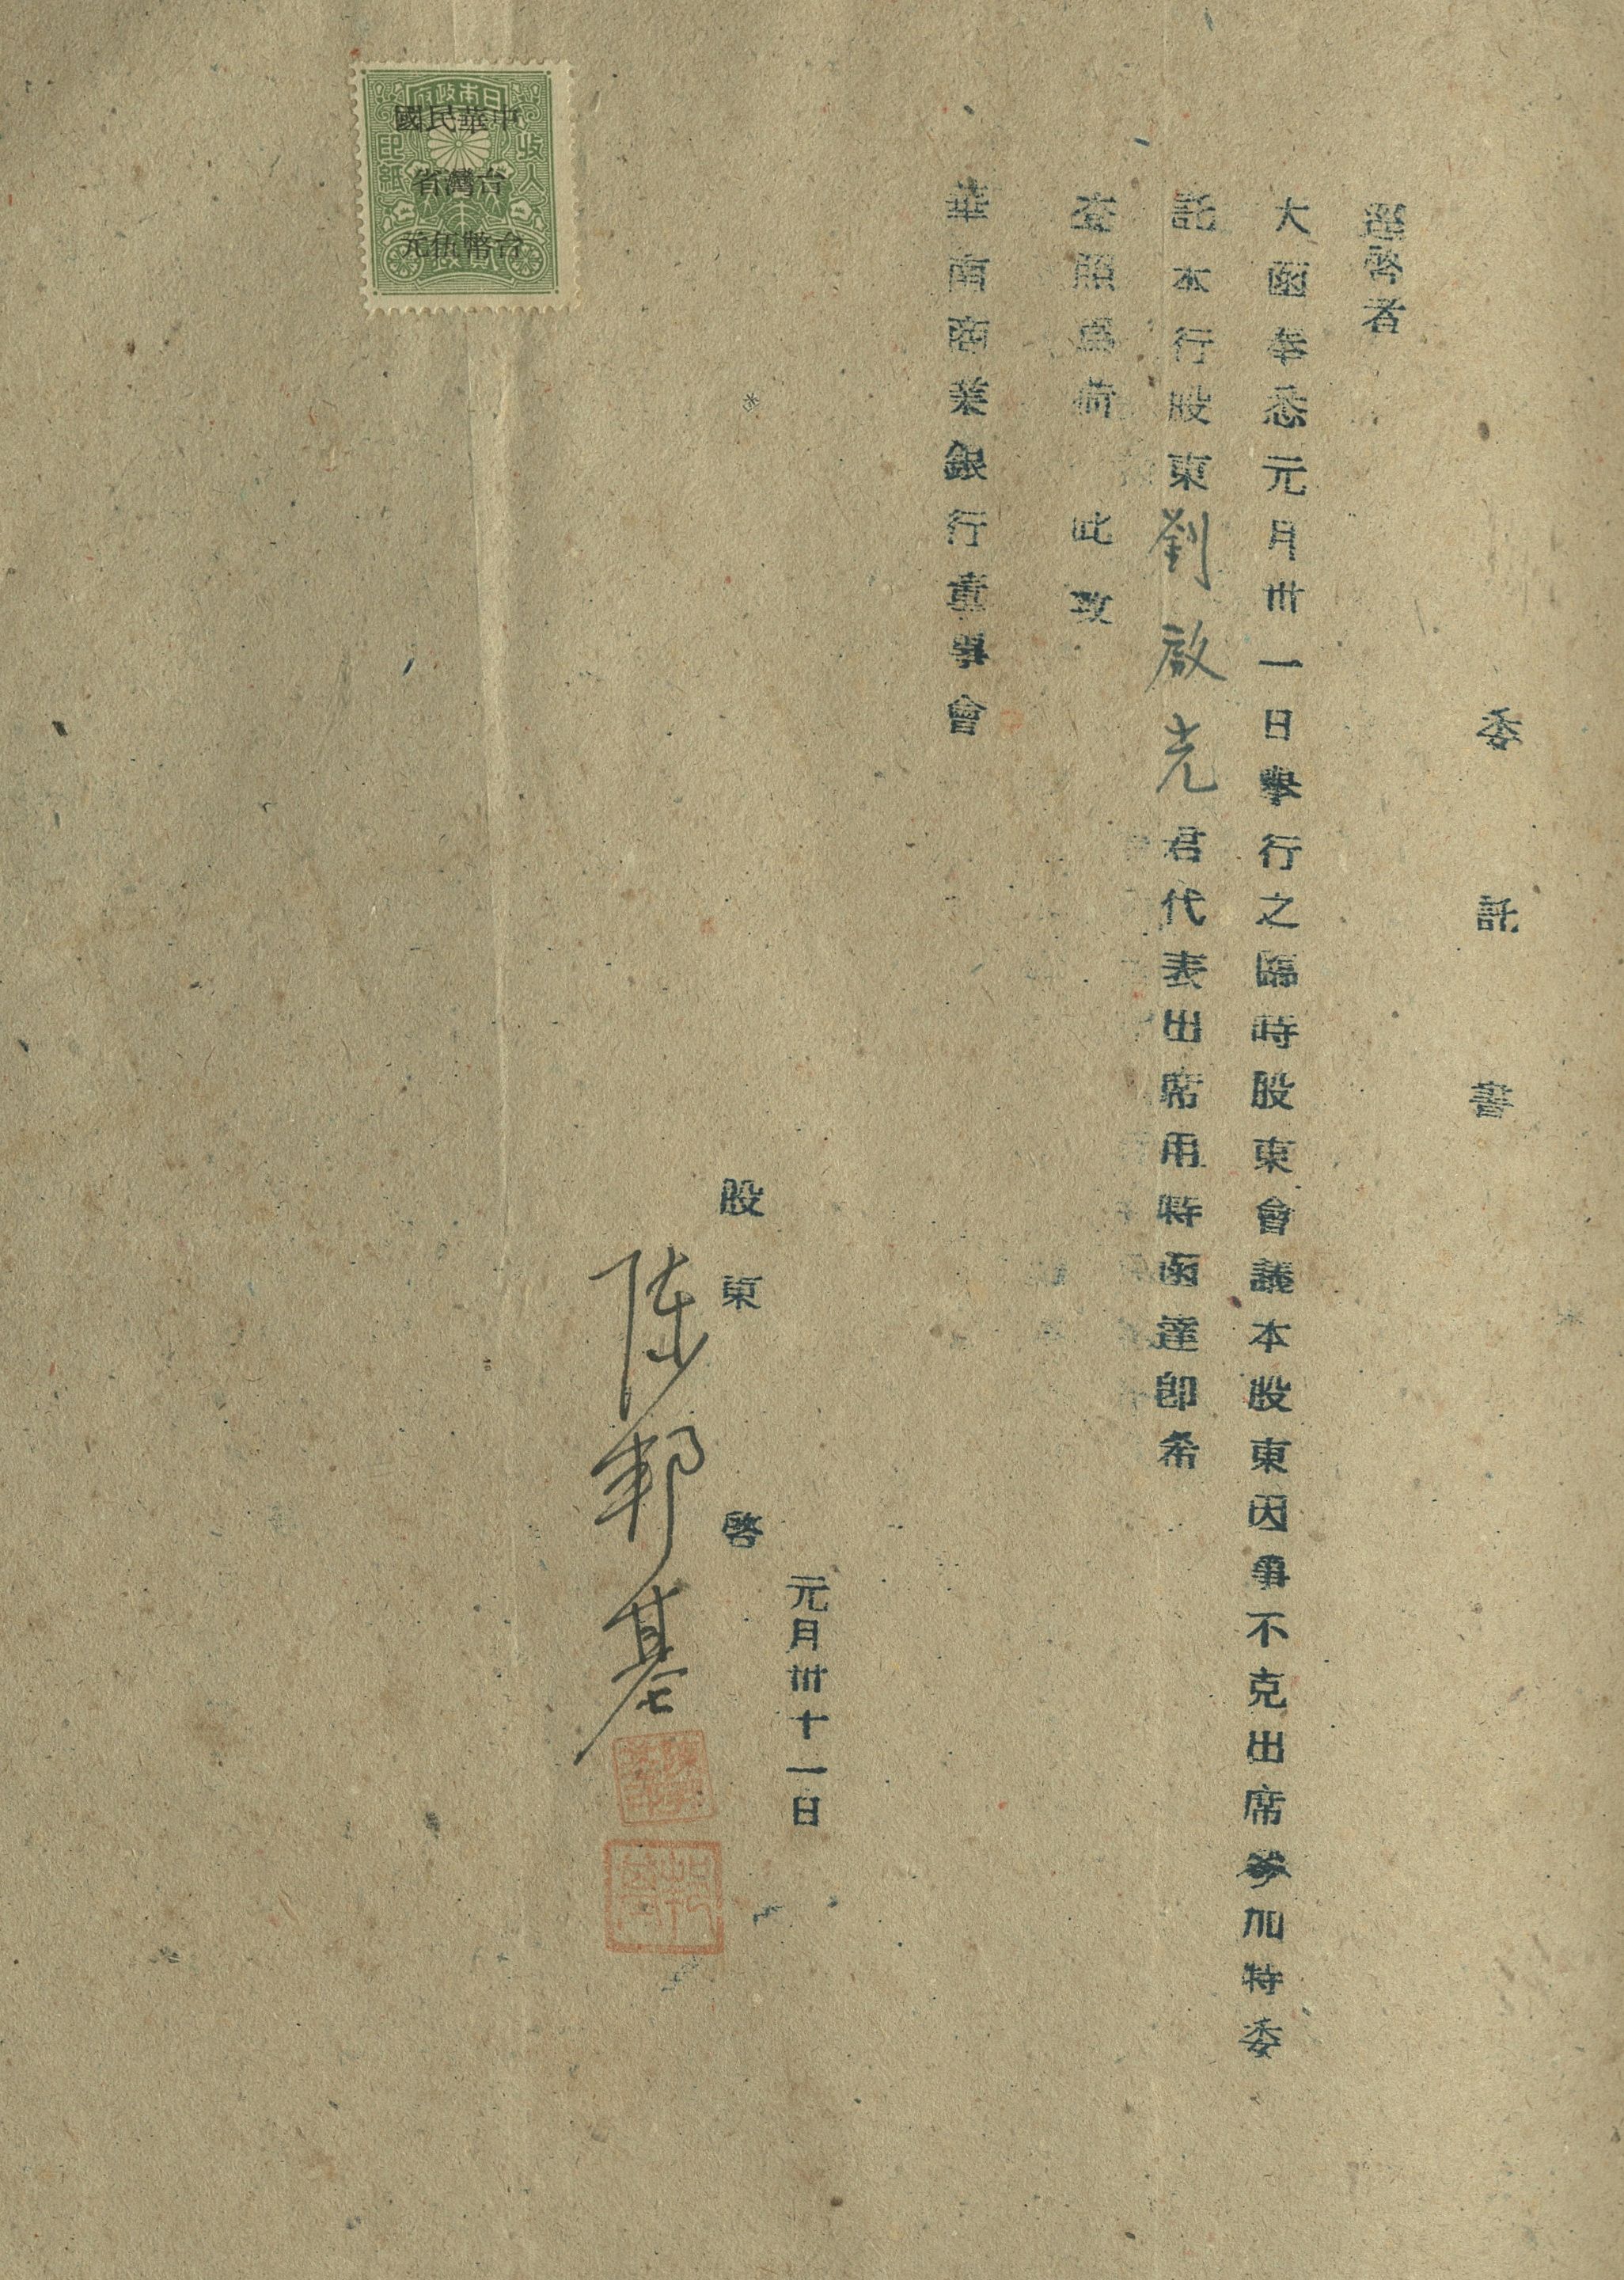 委託書
逕啓者
大函奉悉元月卅一日舉行之臨時股東會議本股東因事不克出席參加特委
託本行股東劉啟光君代表出席用特函達即希
查照爲荷 此致
華南商業銀行董事會
元月卅十一日
股東 啓
陳邦基
日本政府
收入印紙
中華民國
台灣省
台幣伍元